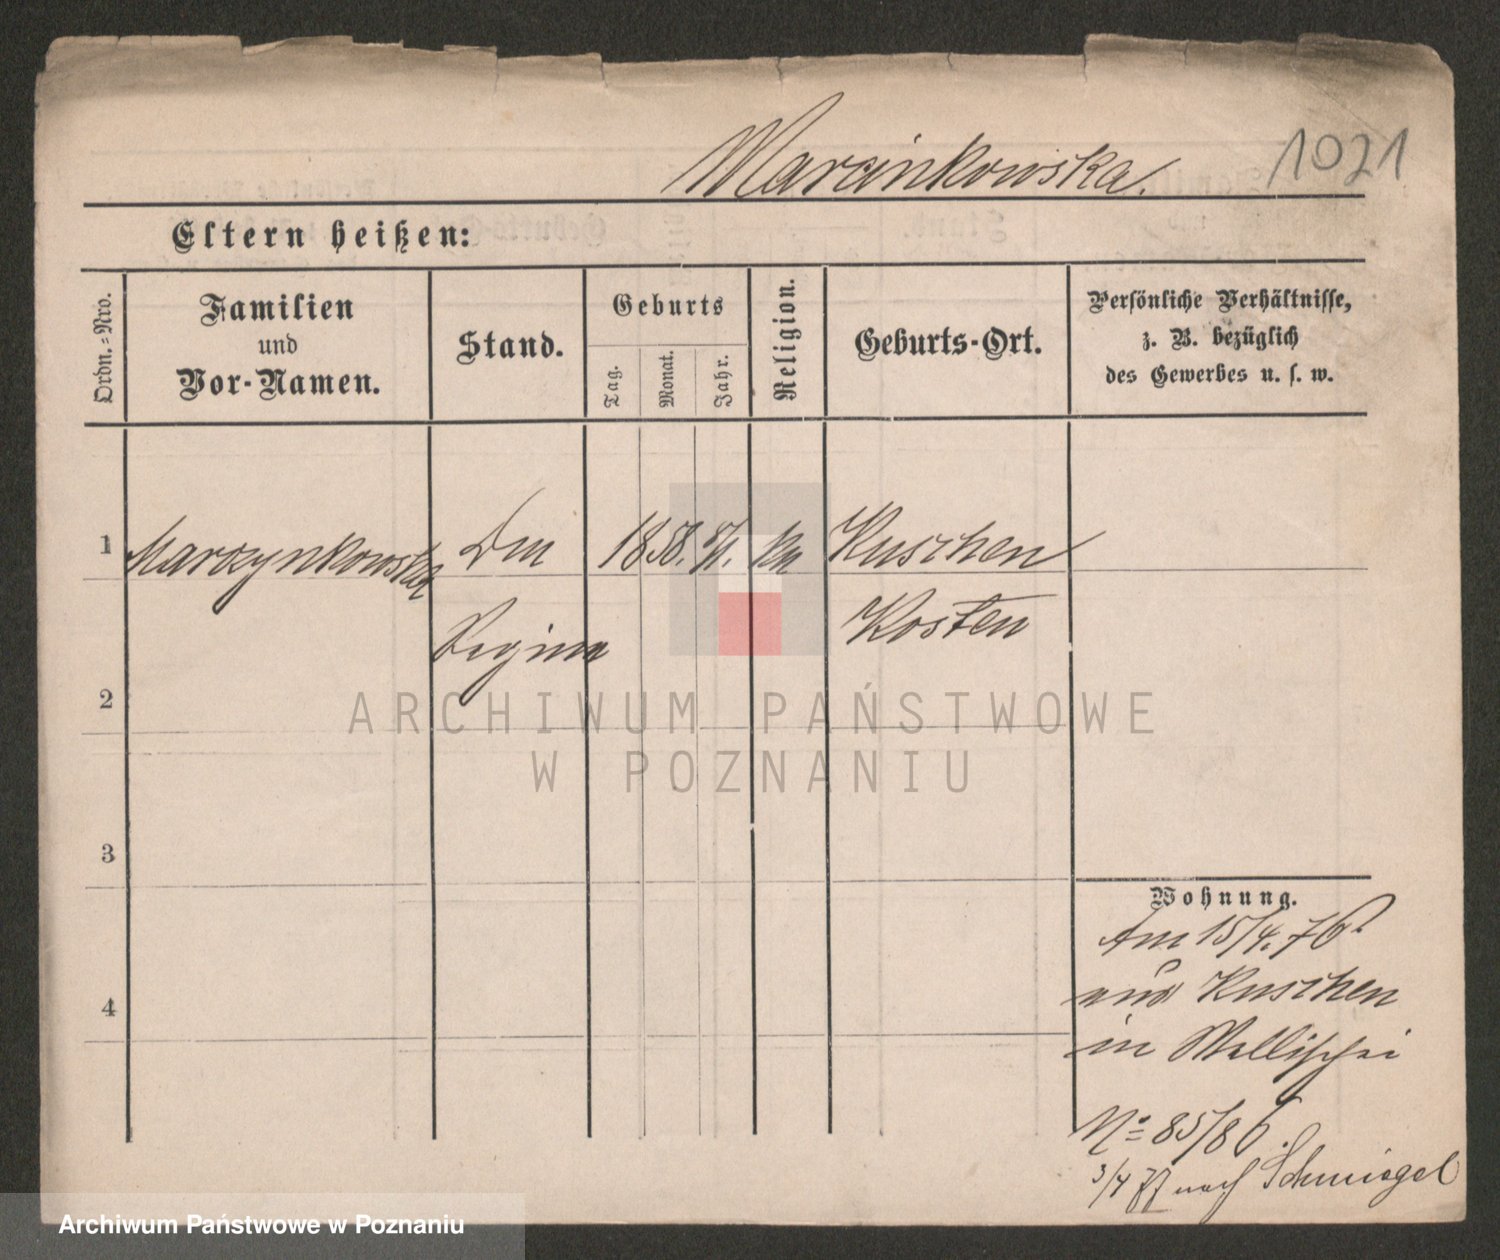 Marcinkowska. 1021
Eltern heißen:
Ordn.=Nro.
Familien
und
Vor-Namen.
Stand.
Geburts
Tag.
Monat.
Jahr.
Religion.
Geburts-Ort.
Persönliche Verhältnisse,
z. B. bezüglich
des Gewerbes u. s. w.
1 Marczynkowska 1858. Kuschen
Regina Kosten
2
ARCHIWUM PAŃSTWOWE
W POZNANIU
3
Wohnung.
Am 15/4. 76
aus Kuschen
in Wallischei
4
No 85/86
3/4 77 nach Schmiegel
Archiwum Państwowe w Poznaniu